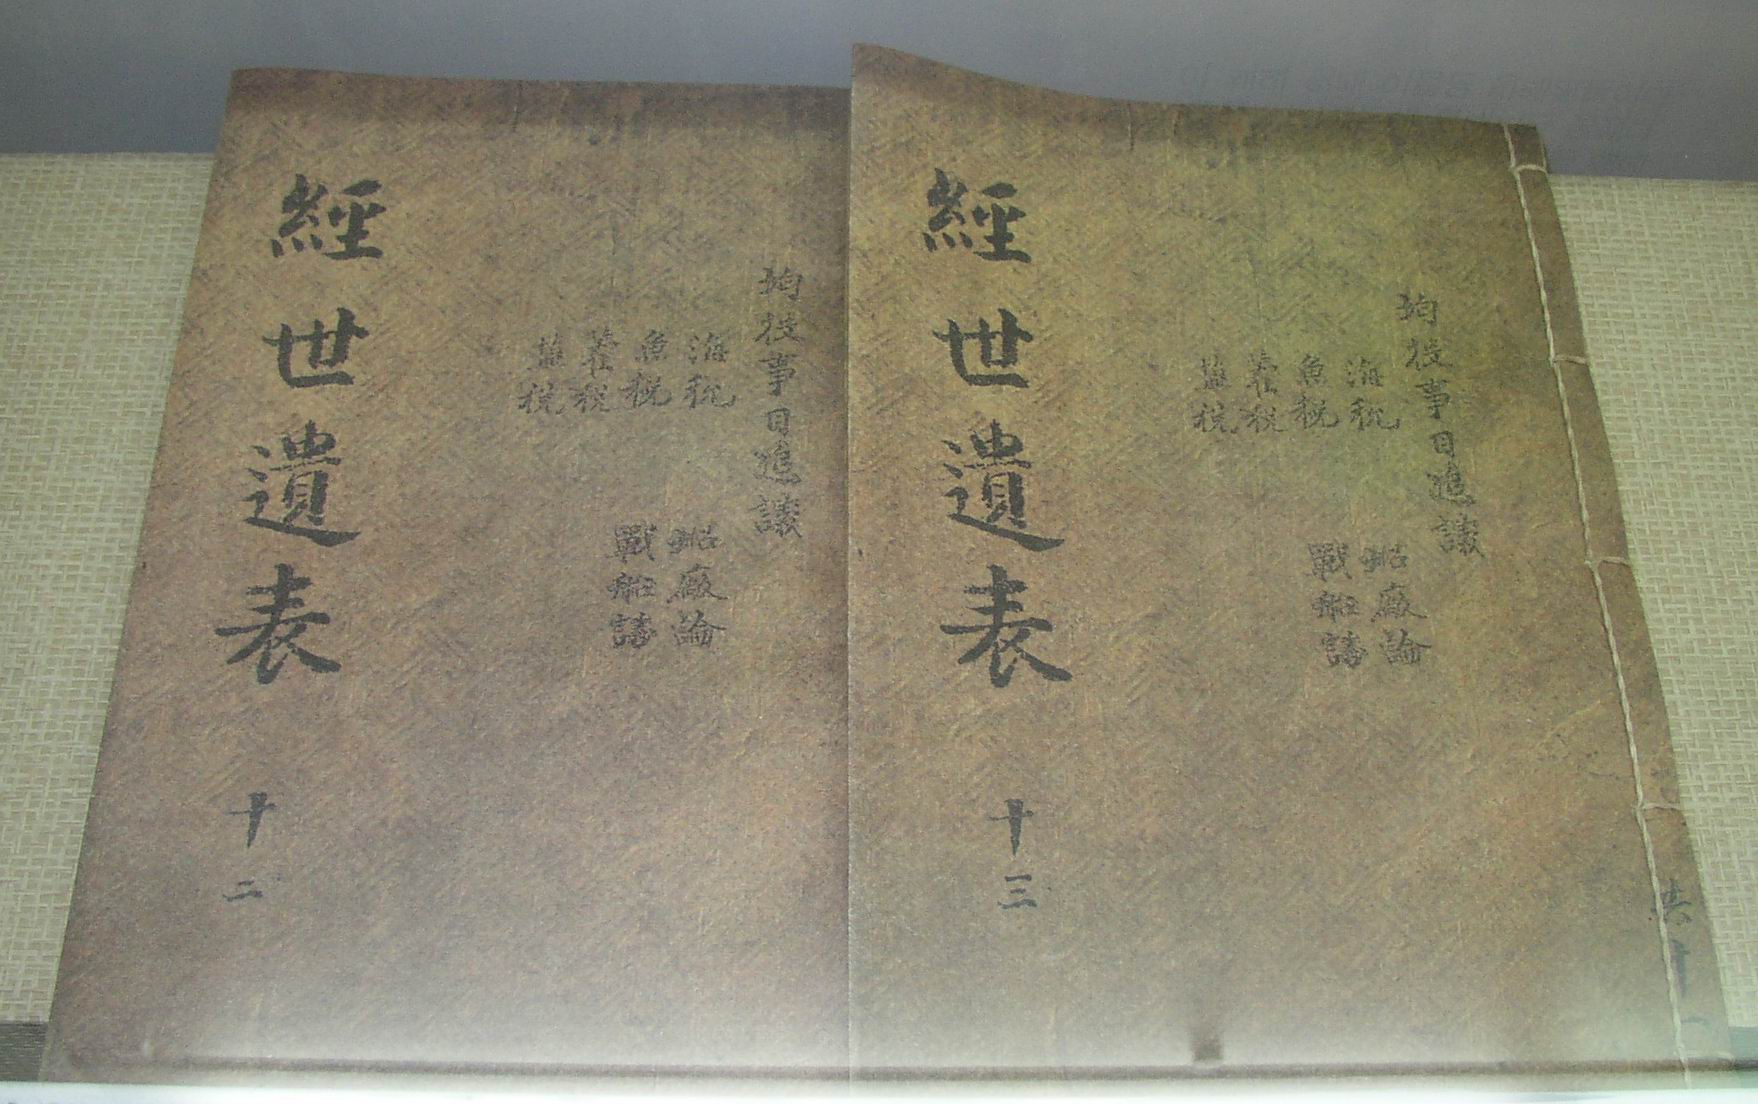 均役事目追議
海稅
魚稅
藿稅
鹽稅
船廠論
戰船
經世遺表 十三
共十一
均役事目追議
海稅
魚稅
藿稅
鹽稅
船廠論
戰船
經世遺表 十二